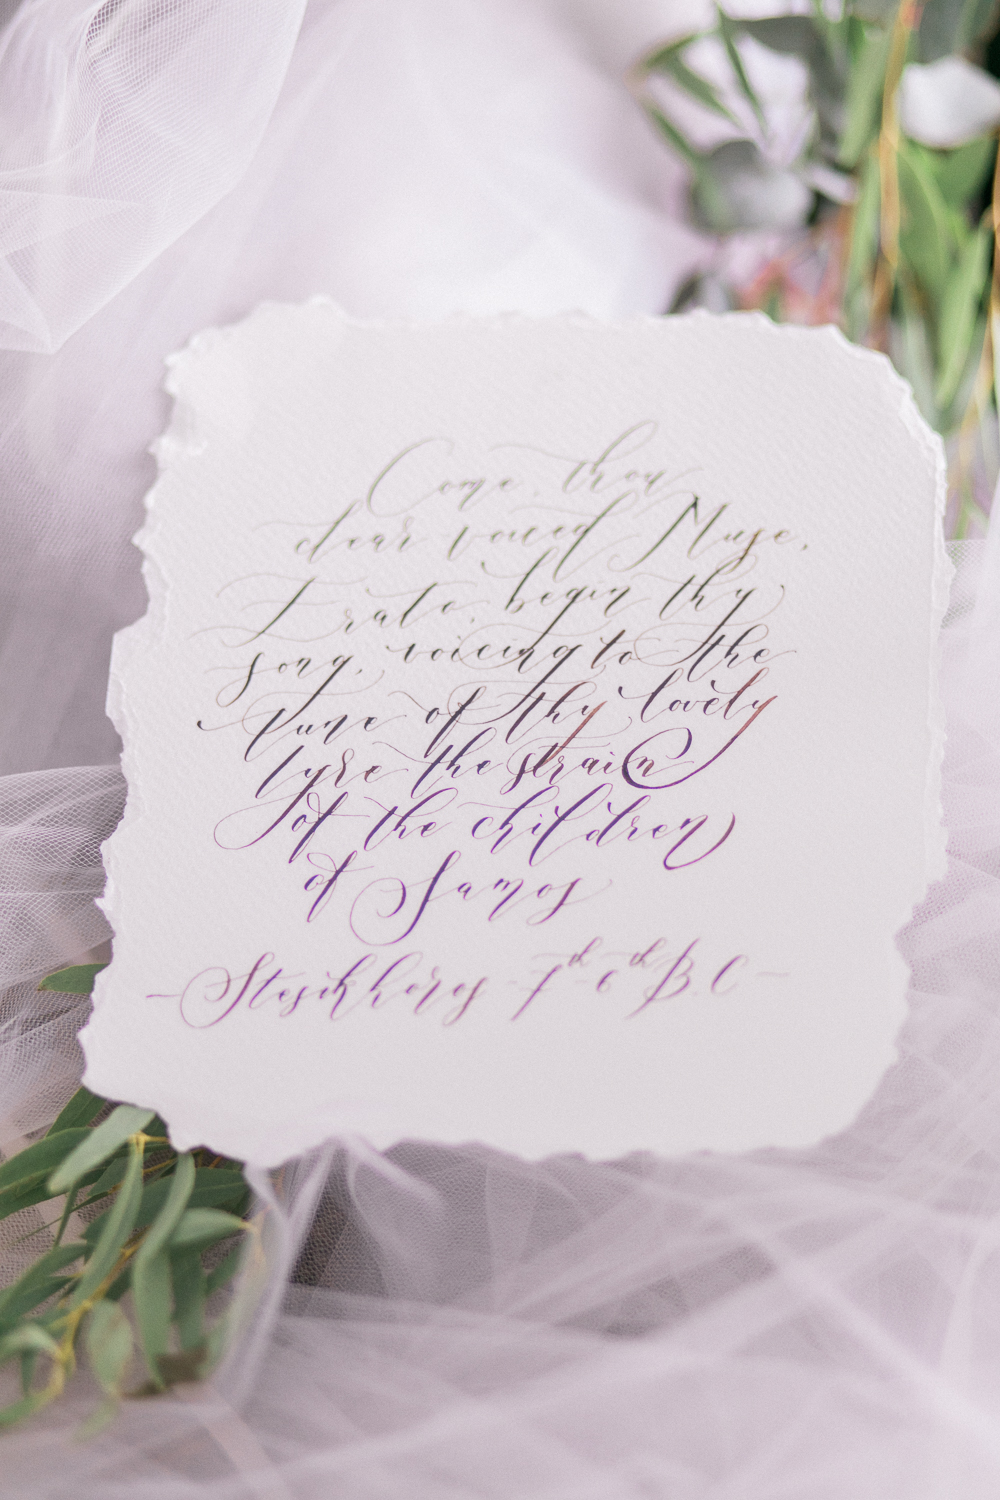 Come, thou
clear voiced Muse,
Erato, begin thy
song, voicing to the
tune of thy lovely
lyre the strain
of the children
of Samos
- Stesikhoros 7th-6th B.C -